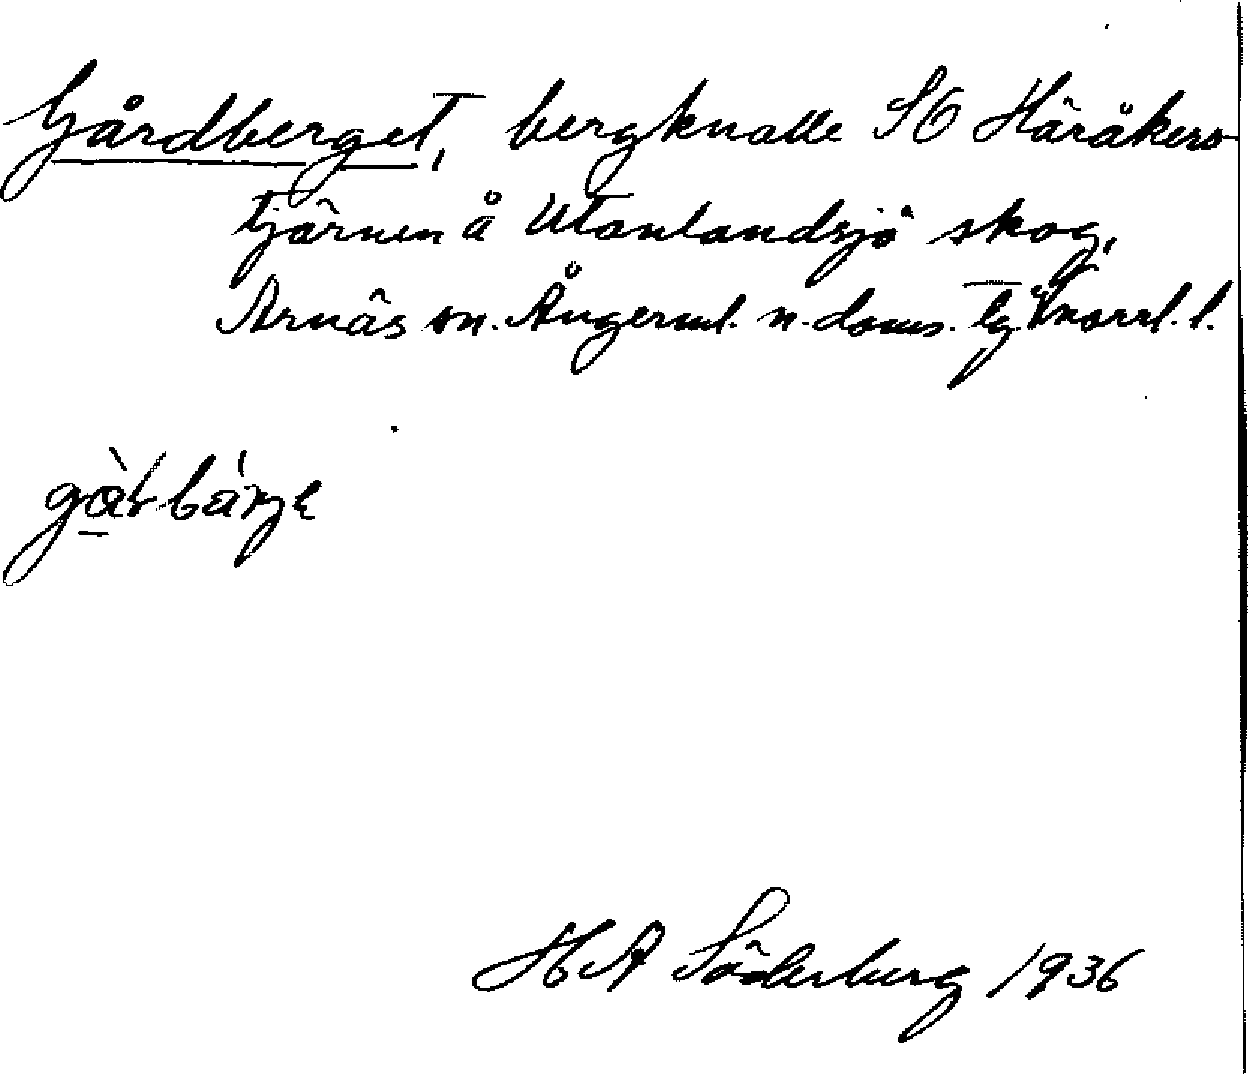 Gårdberget, bergknalle SO Häråkers-
tjärnen å Utanlandsjö skog,
Arnäs sn. Ångerml. n. doms. lg Vnorrl. l.
H A Söderberg 1936